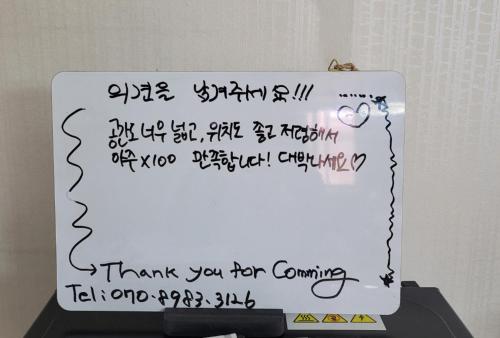 의견을 남겨주세요!!!
공간도 너무 넓고, 위치도 좋고 저렴해서
아주 x100 만족합니다! 대박나세요♡
Thank you for Comming
Tel: 070.8983.3126